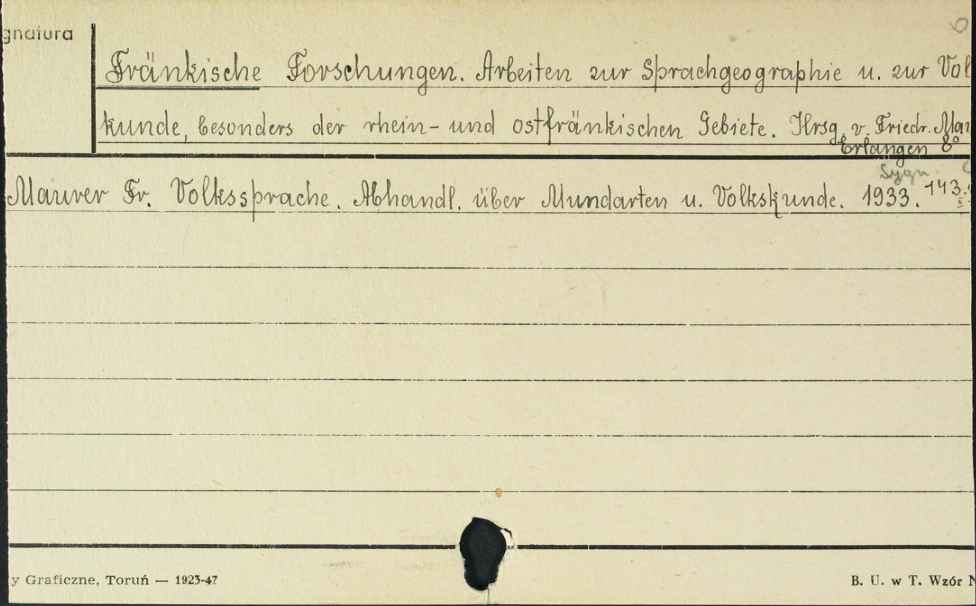 gnatura
Fränkische Forschungen. Arbeiten zur Sprachgeographie u. zur Vol
kunde, besonders der rhein- und ostfränkischen Gebiete. Hrsg. v. Friedr. Mau
Erlangen 8°
Sygn
Maurer Fr. Volkssprache. Abhandl. über Mundarten u. Volkskunde. 1933. 143.
y Graficzne, Toruń — 1923-47
B. U. w T. Wzór N